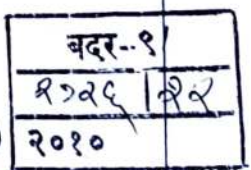 बदर--१
२७२६ | २२
२०१०